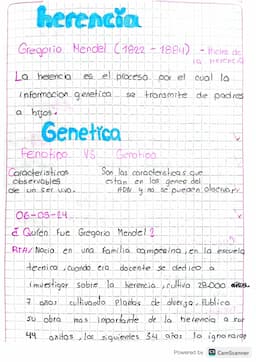 herencia
Gregorio Mendel (1822 - 1884) - Padre de
la herencia
La herencia es el proceso por el cual la
informacion genetica se transmite de padres
a hijos.
Genetica
Fenotipo VS Genotipo
Caracteristicas
observables
de un ser vivo.
Son las caracteristicas que
estan en los genes del
ADN y no se pueden observar
06-03-24
¿Quién Fue Gregorio Mendel?
RTA/ Nacio en una Familia campesina, en la escuela
tecnica, cuando era docente se dedico a
investigar sobre la herencia, cultivo 28.000
7 años cultivando Plantas de Publico
su obra mas importante de la herencia a sus
44 los siguientes 34 años la ignoraron
Powered by CamScanner